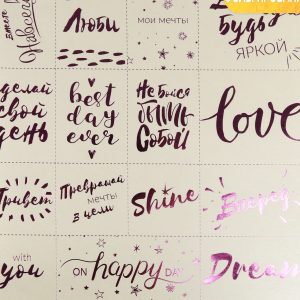 вместе
Навсегда
Люби
мои мечты
Будь
ЯРКОЙ
сделай
свой
день
best
day
ever
Не бойся
быть
собой
love
Привет
Превращай
мечты
в цели
Shine
Вперёд
with
you
ON happy DAY
Dream